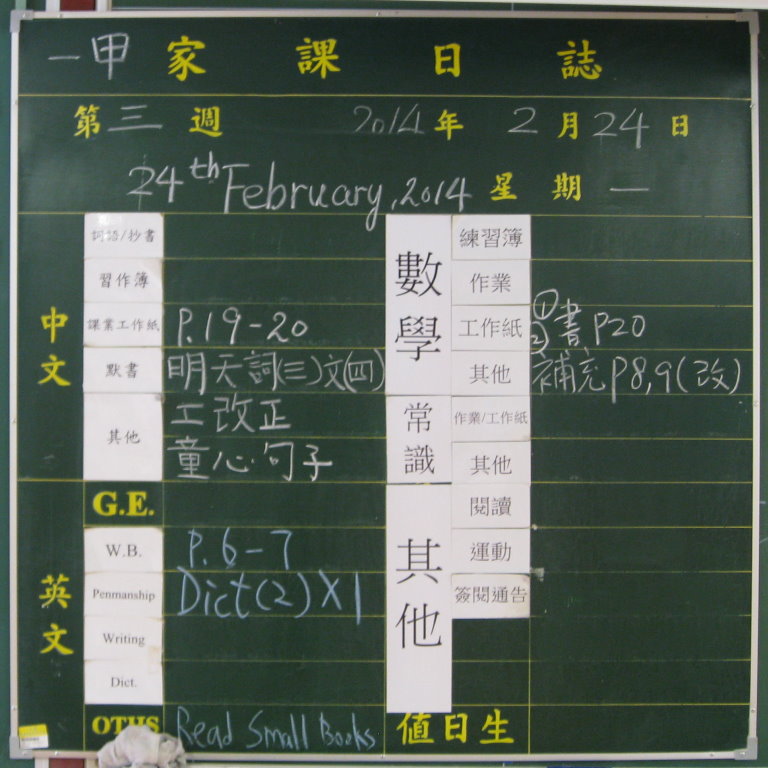 一甲家課日誌
第三週 2014年 2月24日
24th February, 2014 星期一
中文
詞語/抄書
習作簿
課業工作紙 P.19-20
默書 明天詞(三)文(四)
其他 工改正
童心句子
英文
G.E.
W.B. P.6-7
Penmanship Dict(2)×1
Writing
Dict.
OTHS Read Small Books
數學
練習簿
作業
工作紙 ①書P20
其他 ②補充P8,9(改)
常識
作業/工作紙
其他
其他
閱讀
運動
簽閱通告
值日生